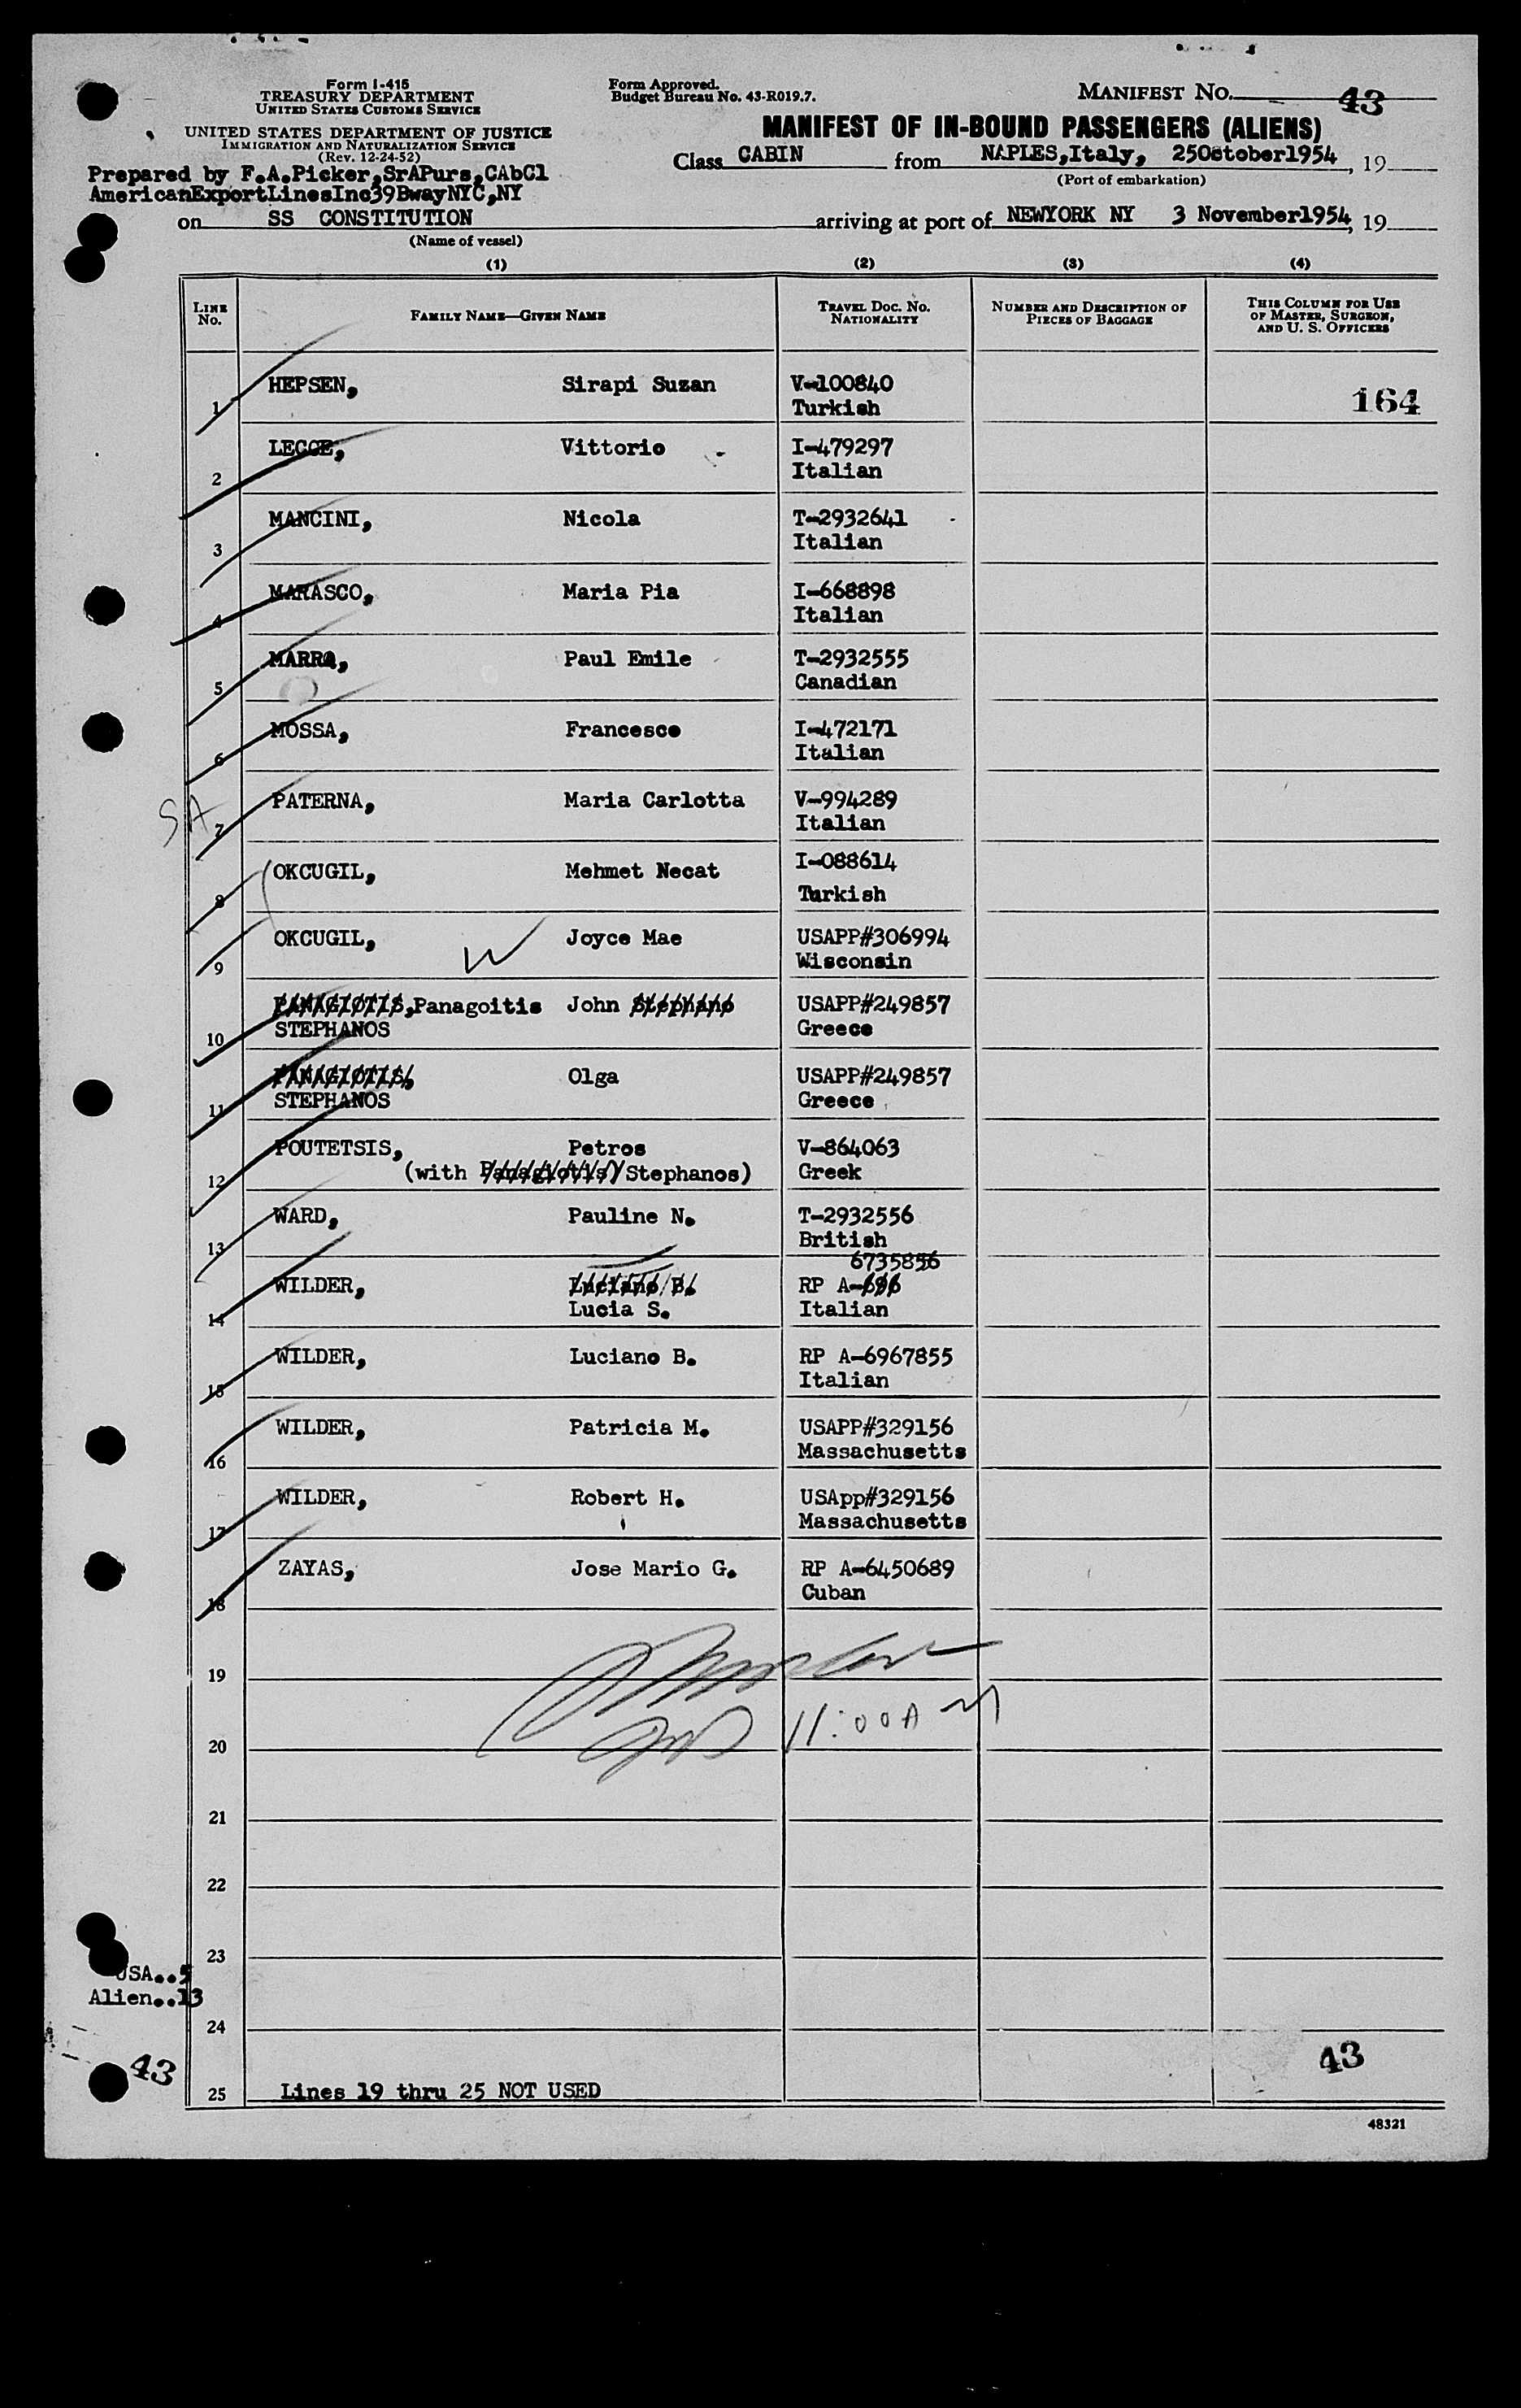 Form I-415
TREASURY DEPARTMENT
UNITED STATES CUSTOMS SERVICE
UNITED STATES DEPARTMENT OF JUSTICE
IMMIGRATION AND NATURALIZATION SERVICE
(Rev. 12-24-52)
Form Approved.
Budget Bureau No. 43-R019.7.
MANIFEST NO. 43
MANIFEST OF IN-BOUND PASSENGERS (ALIENS)
Prepared by F.A.Picker,SrAPurs,CAbCl
AmericanExportLinesInc39BwayNYC,NY
Class CABIN from NAPLES,Italy, 25October1954, 19
(Port of embarkation)
on SS CONSTITUTION arriving at port of NEWYORK NY 3 November1954, 19
(Name of vessel)
(1) (2) (3) (4)
LINE No. FAMILY NAME—GIVEN NAME TRAVEL DOC. NO. NATIONALITY NUMBER AND DESCRIPTION OF PIECES OF BAGGAGE THIS COLUMN FOR USE OF MASTER, SURGEON, AND U. S. OFFICERS
1 HEPSEN, Sirapi Suzan V-100840 164
Turkish
2 LECCE, Vittorio I-479297
Italian
3 MANCINI, Nicola T-2932641
Italian
4 MARASCO, Maria Pia I-668898
Italian
5 MARRO, Paul Emile T-2932555
Canadian
6 MOSSA, Francesco I-472171
Italian
SA 7 PATERNA, Maria Carlotta V-994289
Italian
8 OKCUGIL, Mehmet Necat I-088614
Turkish
9 OKCUGIL, Joyce Mae USAPP#306994
Wisconsin
10 PANAGIOTIS, Panagoitis John Stephano USAPP#249857
STEPHANOS Greece
11 PANAGIOTIS, Olga USAPP#249857
STEPHANOS Greece
12 POUTETSIS, Petros V-864063
(with Panagiotis) Stephanos) Greek
13 WARD, Pauline N. T-2932556
British
6735856
14 WILDER, Luciano B. RP A-696
Lucia S. Italian
15 WILDER, Luciano B. RP A-6967855
Italian
16 WILDER, Patricia M. USAPP#329156
Massachusetts
17 WILDER, Robert H. USApp#329156
Massachusetts
18 ZAYAS, Jose Mario G. RP A-6450689
Cuban
19
20 11:00 AM
21
22
23
USA..5
Alien..13
24
43 43
25 Lines 19 thru 25 NOT USED
48321